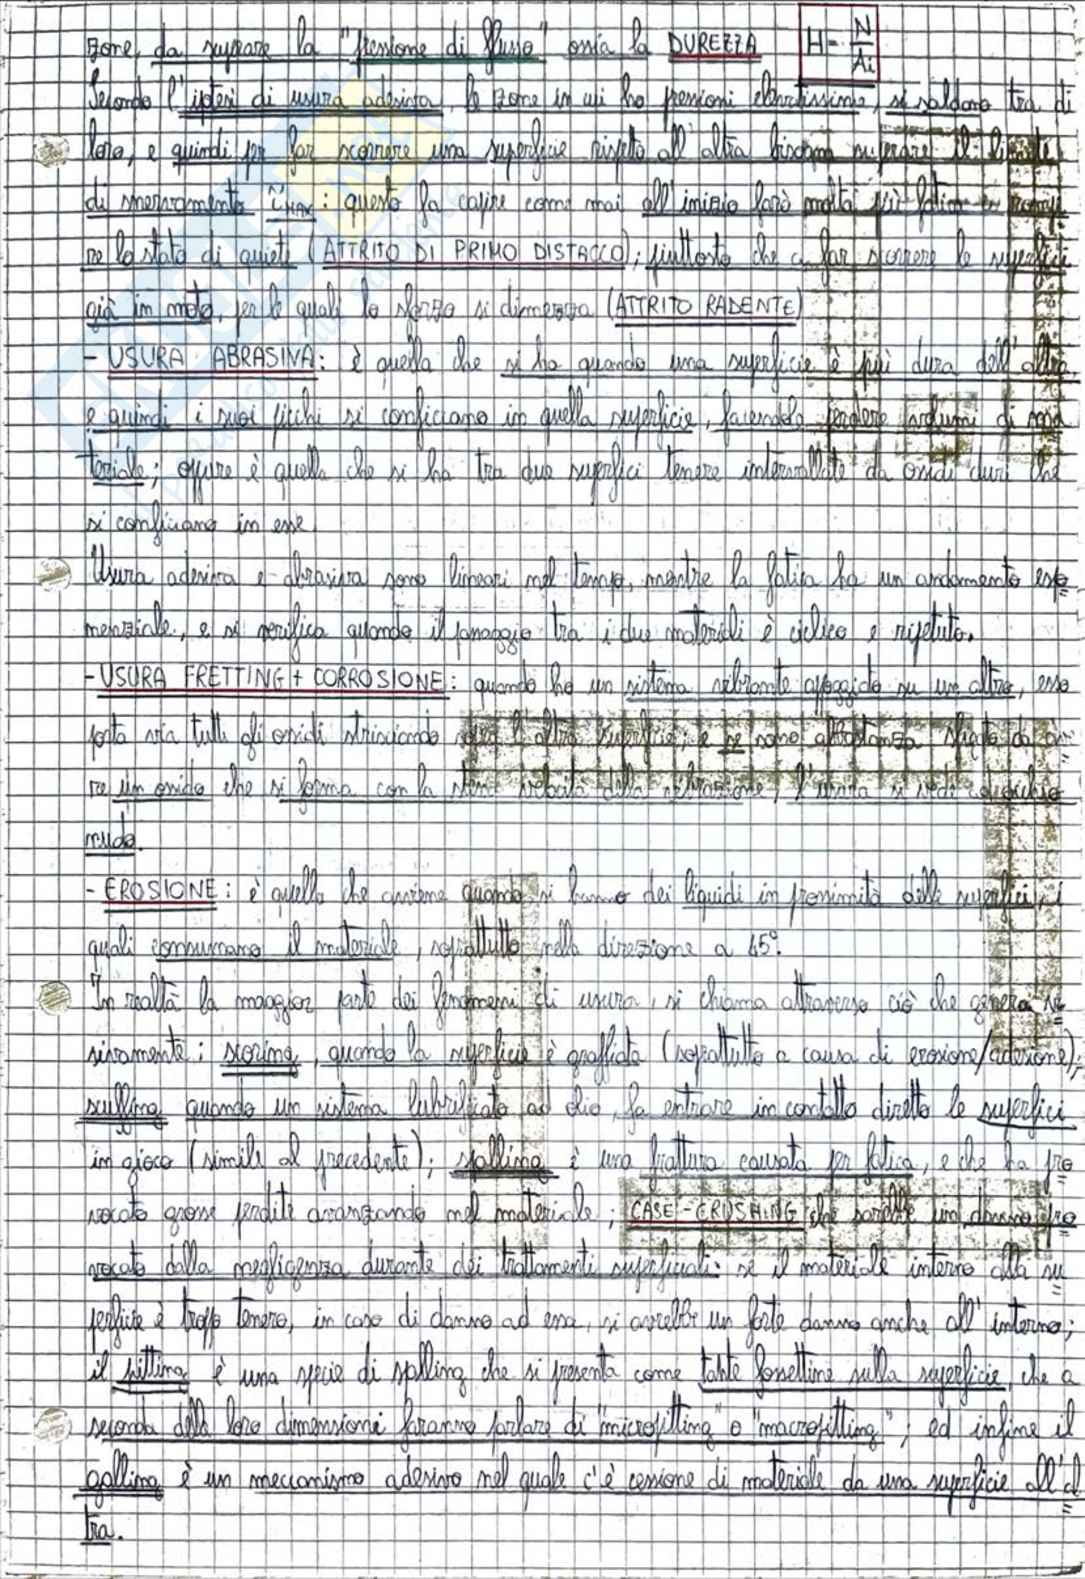 zone, da superare la "pressione di flusso" ossia la DUREZZA H = N/Ai
Secondo l'ipotesi di usura adesiva, le zone in cui ho pressioni elevatissime, si saldano tra di
loro, e quindi per far scorrere una superficie rispetto all'altra bisogna superare il limite
di snervamento τmax: questo fa capire come mai all'inizio farò molta più fatica a rompe
re lo stato di quiete (ATTRITO DI PRIMO DISTACCO); piuttosto che a far scorrere le superfici
già in moto, per le quali lo sforzo si dimezza (ATTRITO RADENTE)
- USURA ABRASIVA: è quella che si ha quando una superficie è più dura dell'altra,
e quindi i suoi picchi si conficcano in quella superficie, facendole perdere volumi di ma
teriale; oppure è quella che si ha tra due superfici tenere intervallate da ossidi duri che
si conficcano in esse.
Usura adesiva e abrasiva sono lineari nel tempo, mentre la fatica ha un andamento espo
nenziale, e si verifica quando il passaggio tra i due materiali è ciclico e ripetuto.
- USURA FRETTING + CORROSIONE: quando ho un sistema vibrante appoggiato su un altro, esso
porta via tutti gli ossidi strisciando sopra l'altra superficie; e se sono abbastanza sfigato da a
re un ossido che si forma con la stessa velocità della vibrazione, l'usura si vede ad occhio
nudo.
- EROSIONE: è quella che avviene quando si hanno dei liquidi in prossimità delle superfici, i
quali consumano il materiale, soprattutto nella direzione a 45°.
In realtà la maggior parte dei fenomeni di usura, si chiama attraverso ciò che genera vi
sivamente: scoring, quando la superficie è graffiata (soprattutto a causa di erosione/adesione);
scuffing quando un sistema lubrificato ad olio, fa entrare in contatto diretto le superfici
in gioco (simile al precedente); spalling è una frattura causata per fatica, e che ha pro
vocato grosse perdite avanzando nel materiale; CASE-CRUSHING che sarebbe un danno pro
vocato dalla negligenza durante dei trattamenti superficiali: se il materiale interno alla su
perficie è troppo tenero, in caso di danno ad essa, si avrebbe un forte danno anche all'interno;
il pitting è una specie di spalling che si presenta come tante fossettine sulla superficie, che a
seconda delle loro dimensioni faranno parlare di "micropitting" o "macropitting"; ed infine il
galling è un meccanismo adesivo nel quale c'è cessione di materiale da una superficie all'al
tra.